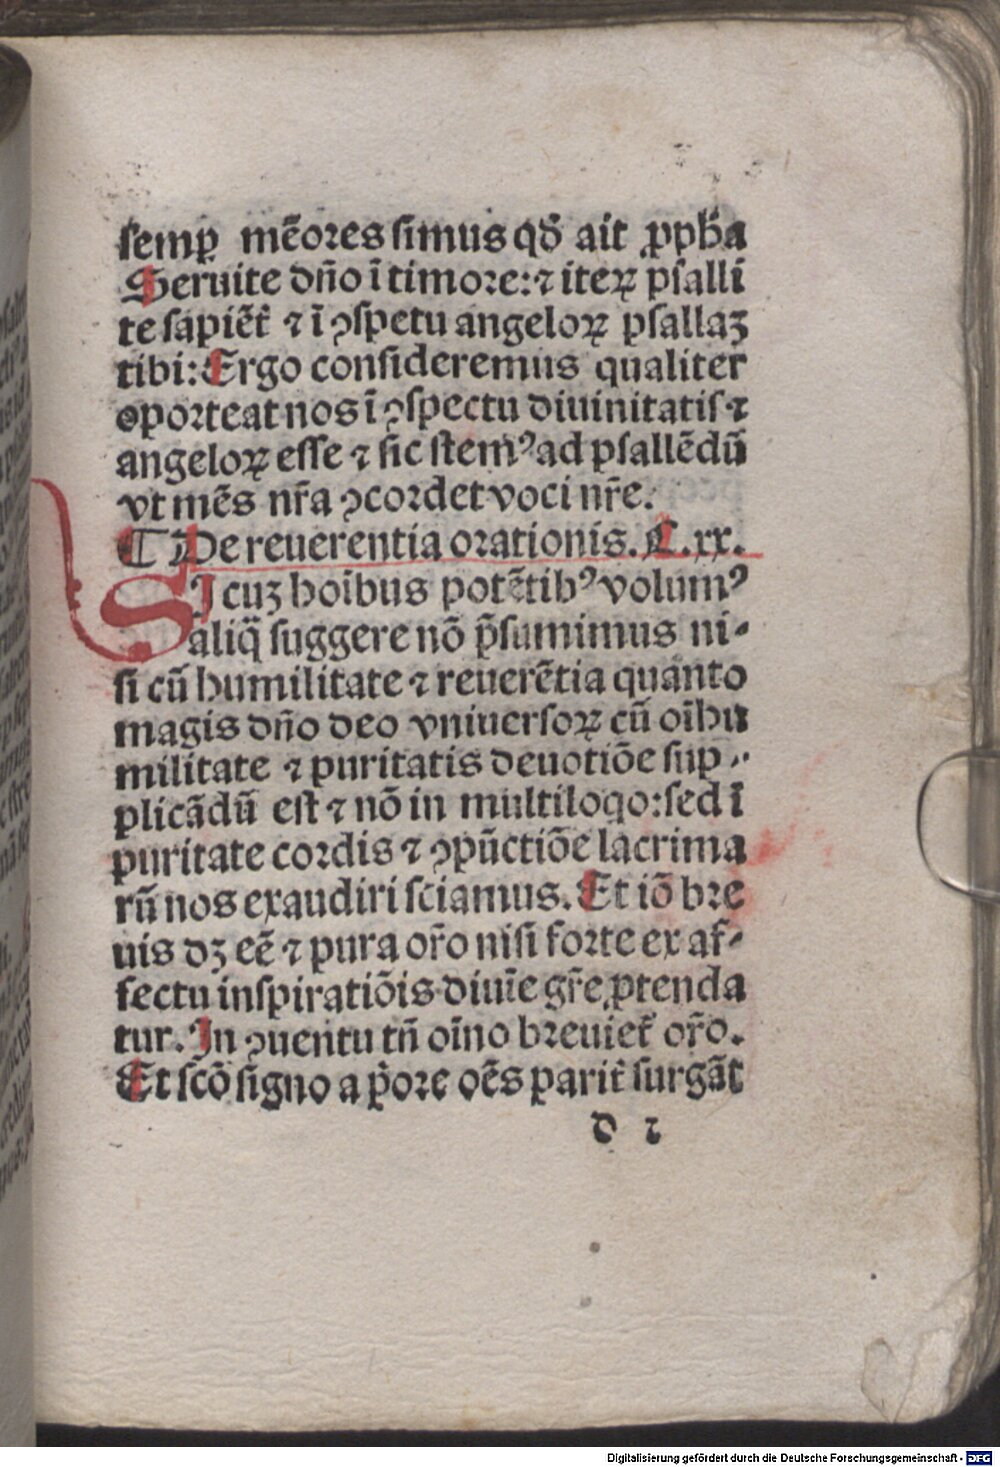 semꝑ mēores simus qđ ait ꝓph̄a
Seruite dn̄o ī timore: ⁊ iteꝝ psalli
te sapiēt̄ ⁊ ī ꝯspetu angeloꝝ psallaꝫ
tibi: Ergo consideremus qualiter
oporteat nos ī ꝯspectu diuinitatis ⁊
angeloꝝ esse ⁊ sic stemꝰ ad psallēdū
vt mēs nr̄a ꝯcordet voci nr̄e.
¶ De reuerentia orationis. C. xx.
SI cuꝫ hoībus potētibꝰ volumꝰ
aliq̄ suggere nō p̄sumimus ni⸗
si cū humilitate ⁊ reuerētia quanto
magis dn̄o deo vniuersoꝝ cū oī hu
militate ⁊ puritatis deuotiōe sup⸗
plicādū est ⁊ nō in multiloqo: sed ī
puritate cordis ⁊ ꝯpūctiōe lacrima
rū nos exaudiri sciamus. Et iō bre
uis dꝫ eē ⁊ pura or̄o nisi forte ex af⸗
fectu inspiratiōis diuīe gr̄e ꝓtenda
tur. In ꝯuentu tn̄ oīno breuiet̄ or̄o.
Et scō signo a p̄ore oēs parit̄ surgāt
d ı
Digitalisierung gefördert durch die Deutsche Forschungsgemeinschaft - DFG